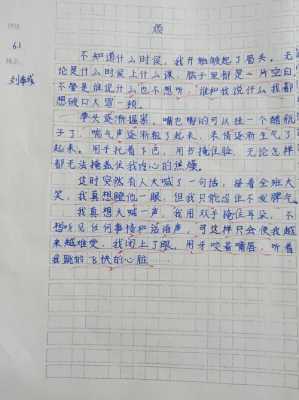 烦
6.1
不知道什么时候,我开始皱起了眉头。无
论是什么时候上什么课,脑子里都是一片空白,
不管是谁说什么也不想听,谁和我说什么我都
想破口大骂一顿。
拳头逐渐握紧,嘴巴嘟的可以挂一个醋瓶
子了,喘气声逐渐粗了起来,表情逐渐生气了
起来。用手托着下巴,用书掩住脸,无论怎样
都无法掩盖住我内心的焦燥。
这时突然有人大喊了一句话,接着全班大
笑,我真想瞪他一眼,但我只能忍住不发脾气。
我真想大喊一声,我用双手掩住耳朵,不
想听见任何事情和话语声,可这样只会使我越
来越难受,我闭上了眼。用牙咬着嘴唇,听着
我跳的飞快的心脏。